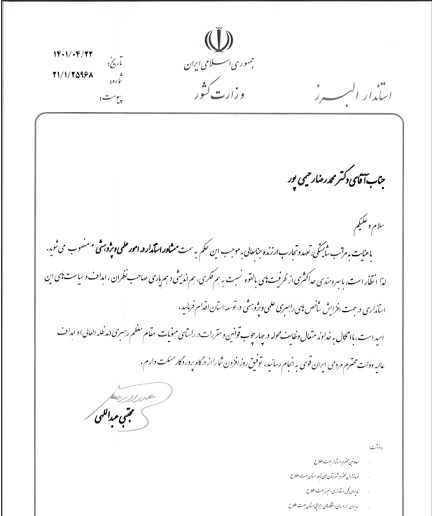 جمهوری اسلامی ایران
وزارت کشور
استاندار البرز
تاریخ: ۱۴۰۱/۰۴/۲۲
شماره: ۲۱/۱/۲۵۹۶۸
پیوست:
جناب آقای دکتر محمدرضا رحیمی پور
سلام و علیکم
با عنایت به مراتب شایستگی، تعهد و تجارب ارزنده جنابعالی به موجب این حکم به سمت "مشاور استاندار در امور علمی و پژوهشی" منصوب می شوید.
لذا انتظار است، با بهره مندی حداکثری از ظرفیت های بالقوه نسبت به هم فکری، هم اندیشی و هم یاری صاحب نظران، اهداف و سیاست های این
استانداری در جهت افزایش شاخص های راهبری علمی و پژوهشی در توسعه استان اقدام فرمائید.
امید است، با اتکال به خداوند متعال وظایف محوله در چهارچوب قوانین و مقررات در راستای منویات مقام معظم رهبری (مدظله العالی) و اهداف
عالیه دولت محترم مردمی ایران قوی به انجام رسانید. توفیق روز افزون شما را از درگاه پروردگار مسئلت دارم.
مجتبی عبداللهی
رونوشت:
معاونین محترم استاندار جهت اطلاع
فرمانداران محترم شهرستان های تابعه استان جهت اطلاع
مدیران کل استانداری البرز جهت اطلاع